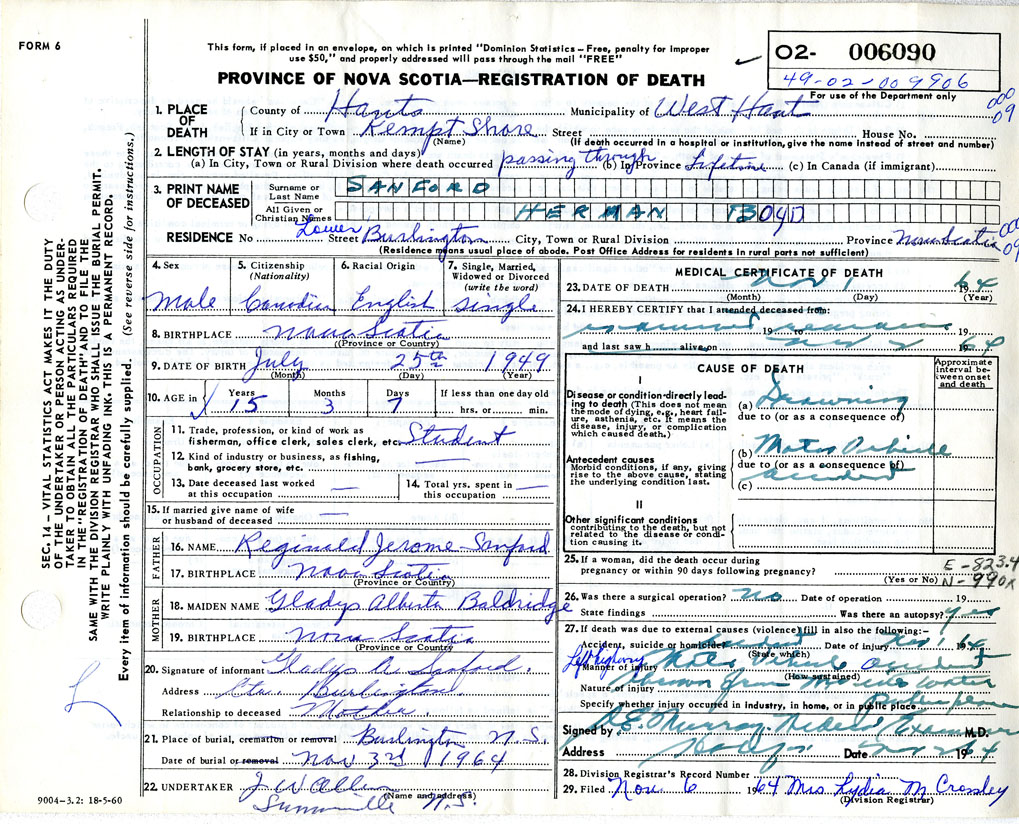 FORM 6
This form, if placed in an envelope, on which is printed "Dominion Statistics – Free, penalty for improper
use $50," and properly addressed will pass through the mail "FREE"
PROVINCE OF NOVA SCOTIA—REGISTRATION OF DEATH
O2- 006090
49-02-009906
For use of the Department only
000
09
1. PLACE OF DEATH
County of Hants Municipality of West Hant
If in City or Town Kempt Shore Street House No.
(Name) (If death occurred in a hospital or institution, give the name instead of street and number)
2. LENGTH OF STAY (in years, months and days)
(a) In City, Town or Rural Division where death occurred passing through (b) In Province Lifetime (c) In Canada (if immigrant)
3. PRINT NAME OF DECEASED
Surname or Last Name SANFORD
All Given or Christian Names HERMAN BOYD
RESIDENCE No Lower Street Burlington City, Town or Rural Division Province Nova Scotia
000
09
(Residence means usual place of abode. Post Office Address for residents in rural parts not sufficient)
4. Sex
Male
5. Citizenship (Nationality)
Canadian
6. Racial Origin
English
7. Single, Married, Widowed or Divorced (write the word)
single
8. BIRTHPLACE Nova Scotia
(Province or Country)
9. DATE OF BIRTH July 25th 1949
(Month) (Day) (Year)
10. AGE in Years 15 Months 3 Days 7 If less than one day old
hrs. or min.
OCCUPATION
11. Trade, profession, or kind of work as
fisherman, office clerk, sales clerk, etc. Student
12. Kind of industry or business, as fishing,
bank, grocery store, etc. —
13. Date deceased last worked
at this occupation —
14. Total yrs. spent in
this occupation —
15. If married give name of wife
or husband of deceased —
FATHER
16. NAME Reginald Jerome Sanford
17. BIRTHPLACE Nova Scotia
(Province or Country)
MOTHER
18. MAIDEN NAME Gladys Alberta Baldridge
19. BIRTHPLACE Nova Scotia
(Province or Country)
20. Signature of informant Gladys A. Sanford.
Address Burlington.
Relationship to deceased Mother.
21. Place of burial, cremation or removal Burlington N.S.
Date of burial or removal Nov 3rd 1964
22. UNDERTAKER J W Allen
(Name and address)
Summerville N.S.
MEDICAL CERTIFICATE OF DEATH
23. DATE OF DEATH Nov 1 1964
(Month) (Day) (Year)
24. I HEREBY CERTIFY that I attended deceased from:
examined 19 to 19
and last saw h alive on Nov 2 1964
CAUSE OF DEATH
Approximate interval between onset and death
I
Disease or condition directly leading to death (This does not mean
the mode of dying, e.g., heart failure, asthenia, etc. It means the
disease, injury, or complication
which caused death.)
(a) Drowning
due to (or as a consequence of)
Antecedent causes
Morbid conditions, if any, giving
rise to the above cause, stating
the underlying condition last.
(b) Motor Vehicle
due to (or as a consequence of)
accident
(c)
II
Other significant conditions
contributing to the death, but not
related to the disease or condition causing it.
25. If a woman, did the death occur during
pregnancy or within 90 days following pregnancy?
(Yes or No)
E-823.4
N-990X
26. Was there a surgical operation? no Date of operation 19
State findings Was there an autopsy? yes
27. If death was due to external causes (violence) fill in also the following:–
Accident, suicide or homicide accident Date of injury Nov 1 1964
(State which)
Left highway
Manner of injury Motor Vehicle accident
(How sustained)
Nature of injury
Specify whether injury occurred in industry, in home, or in public place
Signed by Murray Medical Examiner M.D.
Address Date 1964
28. Division Registrar's Record Number
29. Filed Nov. 6 1964 Mrs Lydia M Crossley
(Division Registrar)
SEC. 14 – VITAL STATISTICS ACT MAKES IT THE DUTY
OF THE UNDERTAKER OR PERSON ACTING AS UNDER-
TAKER TO OBTAIN ALL THE PARTICULARS REQUIRED
IN THE "REGISTRATION OF DEATH" AND TO FILE THE
SAME WITH THE DIVISION REGISTRAR WHO SHALL ISSUE THE BURIAL PERMIT.
WRITE PLAINLY WITH UNFADING INK. THIS IS A PERMANENT RECORD.
Every item of information should be carefully supplied. (See reverse side for instructions.)
9004-3.2: 18-5-60